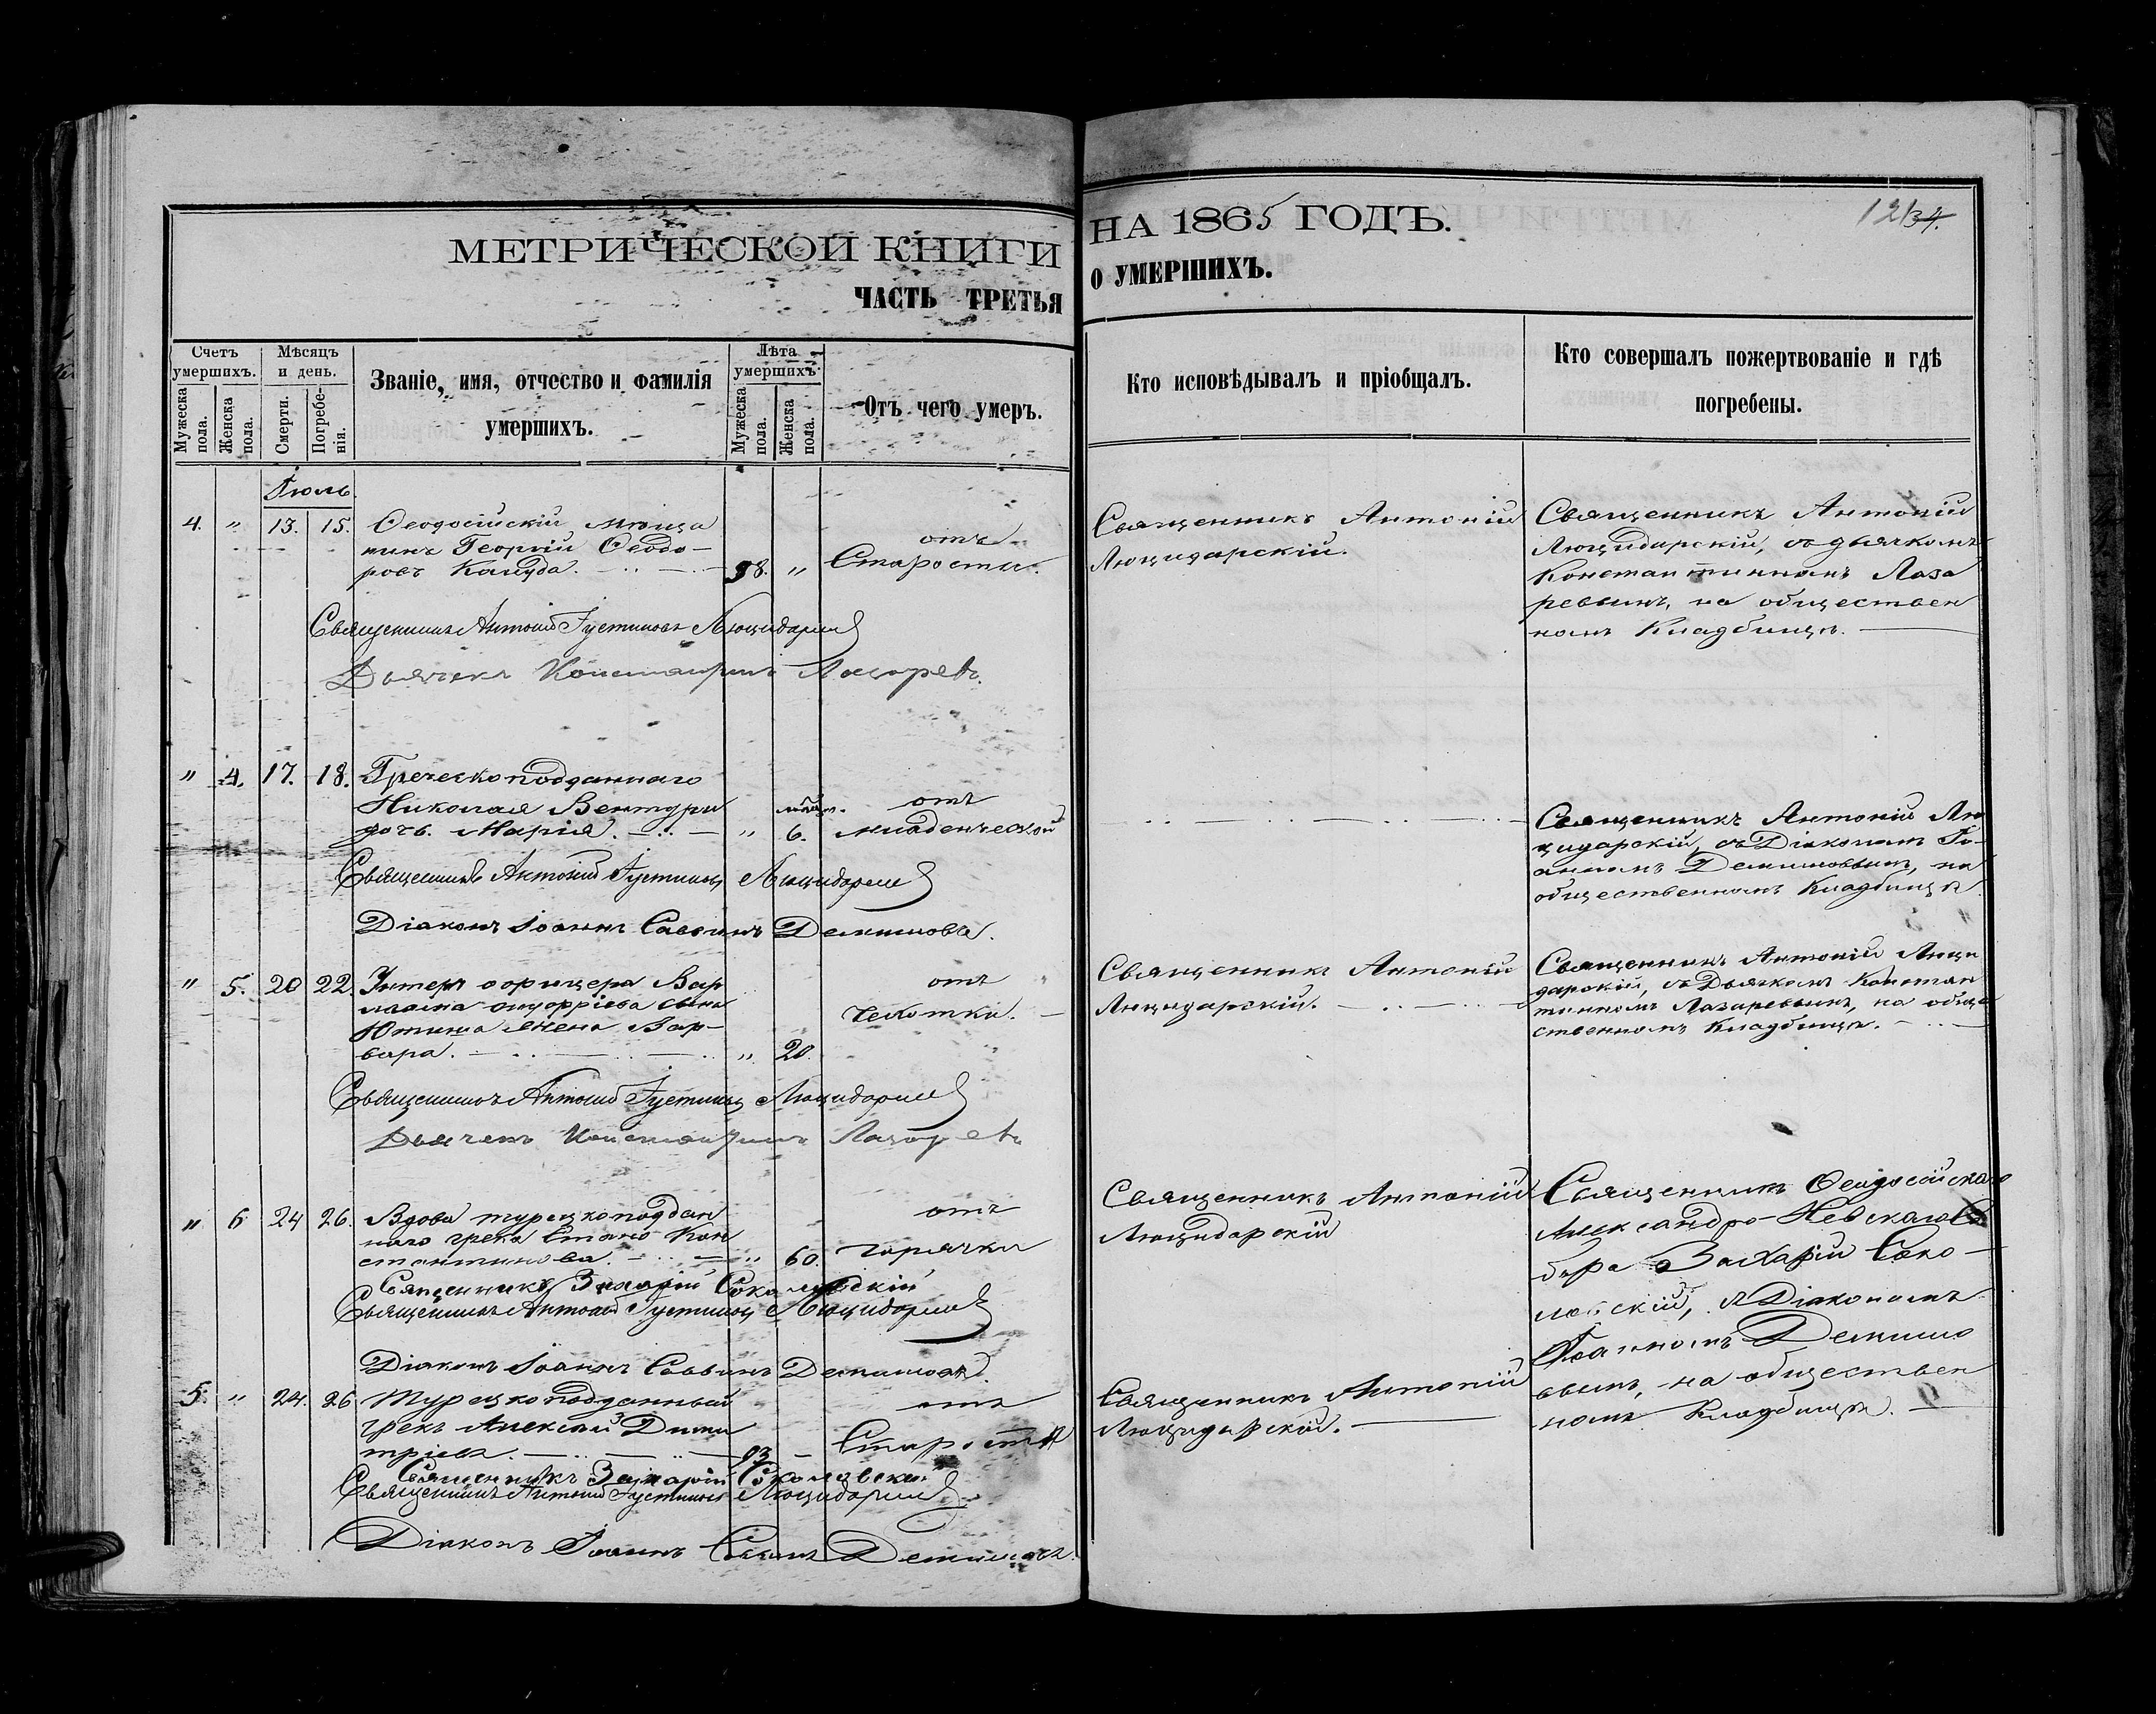 МЕТРИЧЕСКОЙ КНИГИ
ЧАСТЬ ТРЕТЬЯ
НА 1865 ГОДЪ.
О УМЕРШИХЪ.
Счетъ умершихъ.
Мужеска пола.
Женска пола.
Мѣсяцъ и день.
Смерти.
Погребенія.
Званіе, имя, отчество и фамилія
умершихъ.
Лѣта умершихъ.
Мужеска пола.
Женска пола.
Отъ чего умеръ.
Кто исповѣдывалъ и пріобщалъ.
Кто совершалъ пожертвованіе и гдѣ
погребены.
Іюль.
4. " 13. 15. Ѳеодосійскій мѣща
нинъ Георгій Ѳеодо-
ровъ
98. "
отъ
Старости.
Священникъ Антоній
Люцидарскій.
Священникъ Антоній
Люцидарскій, съ дьячкомъ
Константиномъ Лаза
ревымъ, на обществен
номъ Кладбищѣ.
Священникъ Антоній Іустиновъ Люцидарскій
Дьячекъ Константинъ Лазаревъ.
" 4. 17. 18. Греческоподданнаго
Николая Вентури
дочь Марія.
" 6.
отъ
младенческой
Священникъ Антоній Лю
цидарскій, съ Діакономъ Іо-
анномъ Демишовымъ, на
общественномъ Кладбищѣ
Священникъ Антоній Іустиновъ Люцидарскій
Діаконъ Іоаннъ Саввинъ Демишовъ.
" 5. 20 22. Унтеръ офицера Вар
лаама Онуфріева сына
жена Вар-
вара.
" 20.
отъ
чехотки.
Священникъ Антоній
Люцидарскій.
Священникъ Антоній Люци
дарскій, съ Дьячкомъ Констан
тиномъ Лазаревымъ, на обще
ственномъ Кладбищѣ.
Священникъ Антоній Іустиновъ Люцидарскій
Дьячекъ Константинъ Лазаревъ
" 6 24 26. Вдова турецкоподдан
наго грека Кон
стантинова.
" 60.
отъ
горячки
Священникъ Антоній
Люцидарскій
Священникъ Ѳеодосійскаго
Александро-Невскаго Со
бора Захарій Соко-
ловскій, съ Діакономъ
Іоанномъ Демишо
вымъ, на обществен
номъ Кладбищѣ.
Священникъ Захарій Соколовскій
Священникъ Антоній Іустиновъ Люцидарскій
Діаконъ Іоаннъ Саввинъ Демишовъ.
5. " 24. 26 Турецкоподданный
грекъ Алексѣй Дими
тріевъ.
93
отъ
Старости
Священникъ Антоній
Люцидарскій.
Священникъ Захарій Соколовскій
Священникъ Антоній Іустиновъ Люцидарскій
Діаконъ Іоаннъ Саввинъ Демишовъ.